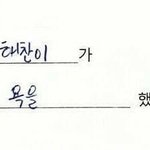 태찬이 가
욕을 했